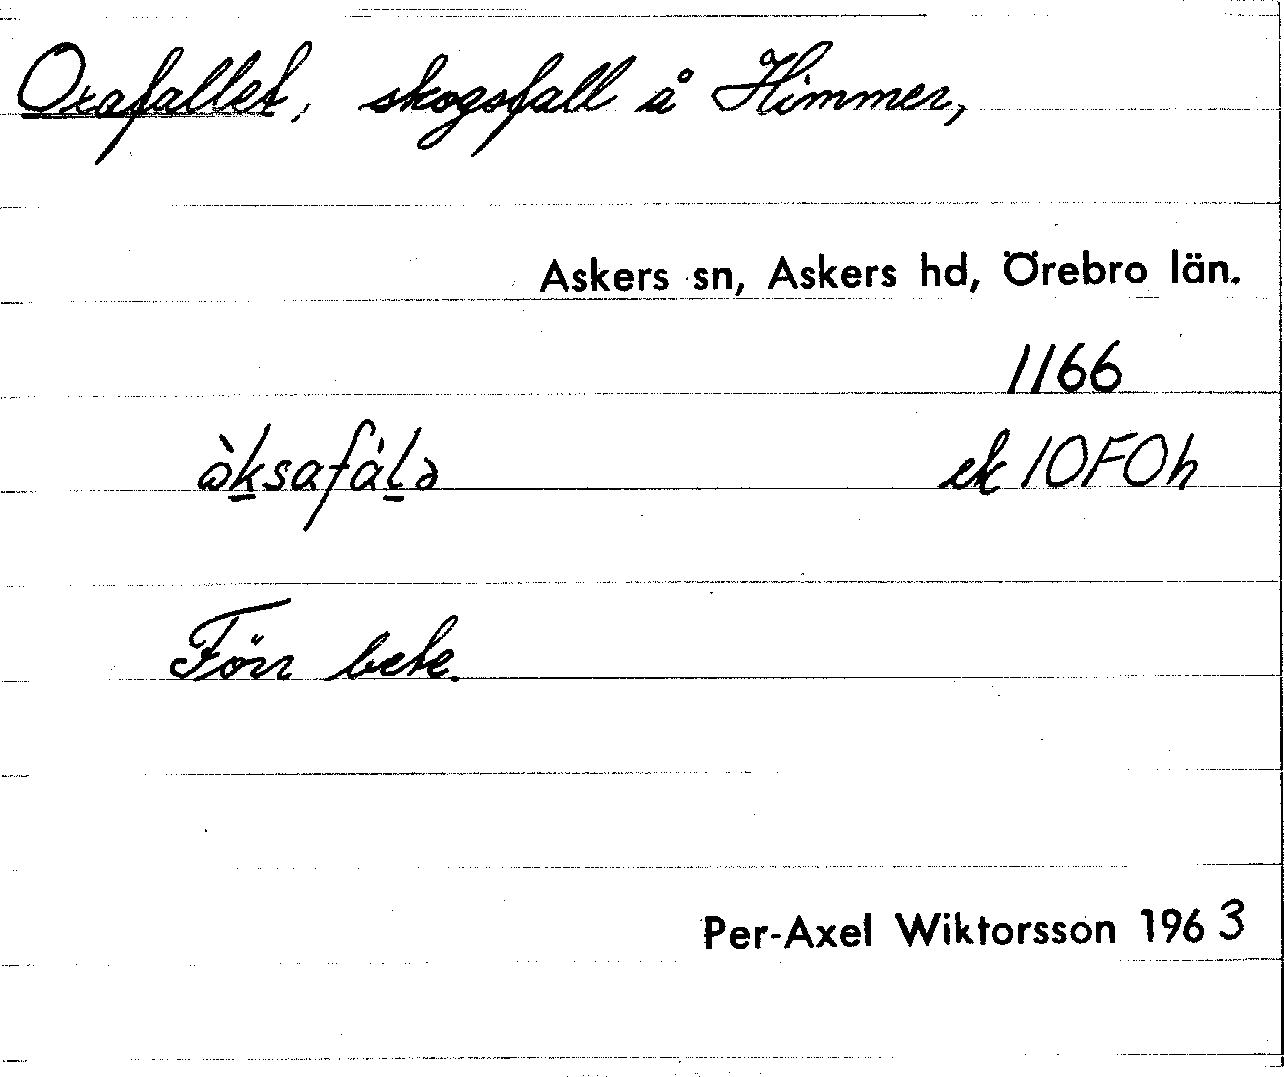 Oxafallet, skogsfall å Himmer,
Askers sn, Askers hd, Örebro län.
1166
ek 10F0h
Förr bete.
Per-Axel Wiktorsson 1963